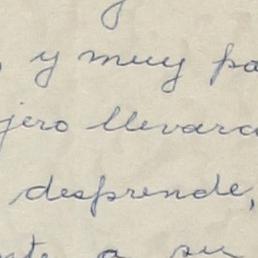 , y muy pa
jero llevara
desprende,
nte a su